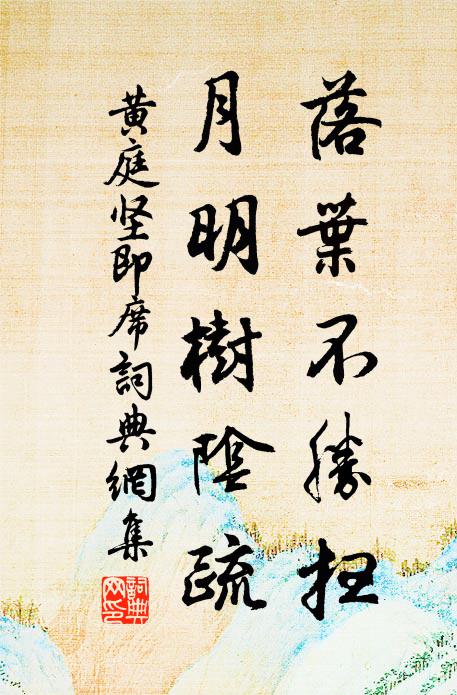 落葉不勝掃
月明樹陰疏
黄庭坚即席詞典網集
詞典網印